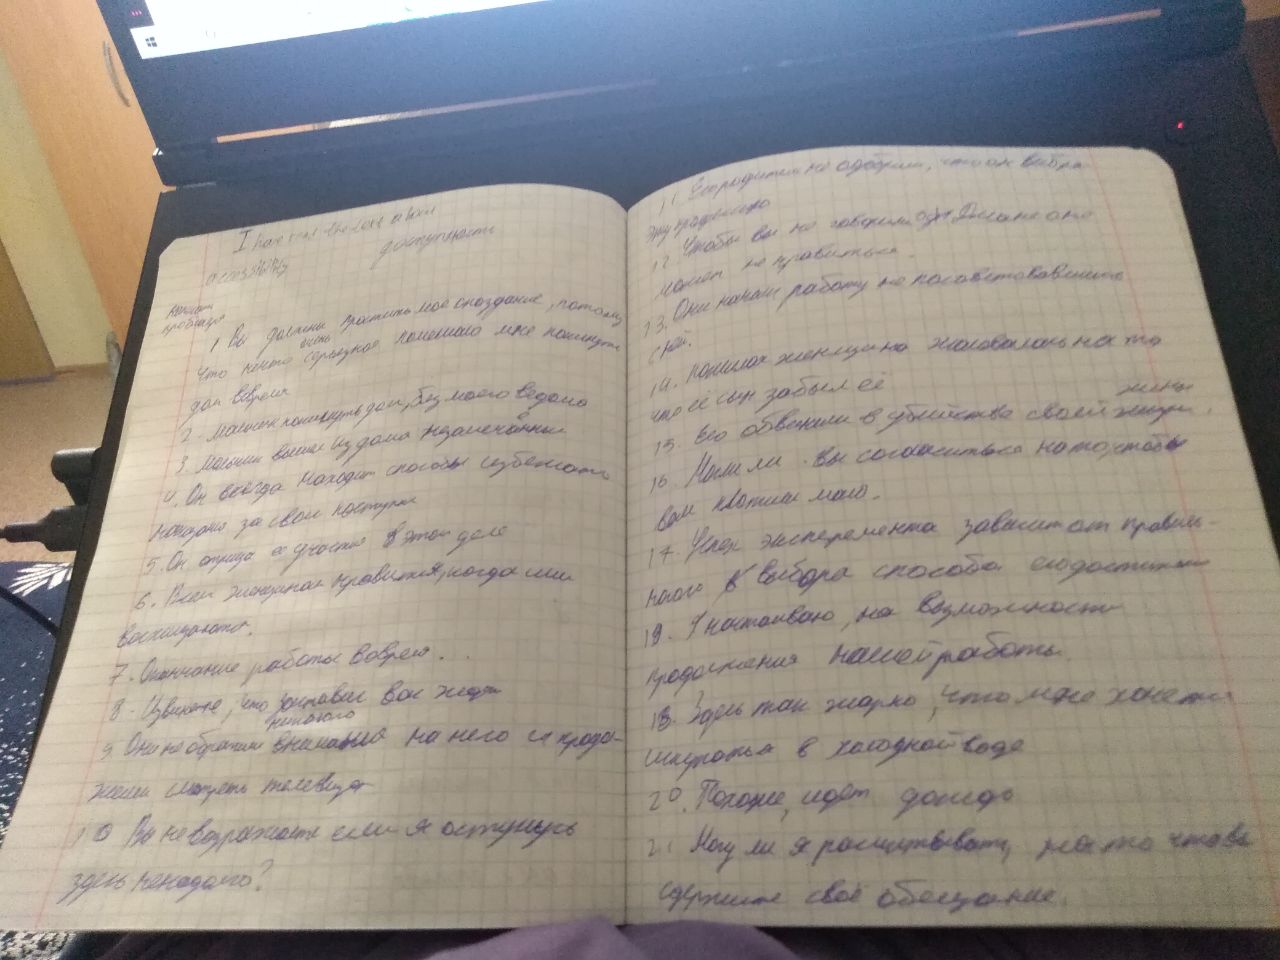 I have read the text about
accessibility доступности
1 Вы должны простить мое опоздание, потому
что нечто очень серьезное помешало мне покинуть
дом вовремя
2. Мальчик покинуть дом, без моего ведома
3. Мальчик вышел из дома незамеченным
4. Он всегда находит способы избежать
за свои поступки
5. Он отрица ее участие в этом деле
6. Всем женщинам нравится, когда ими
восхищаются.
7. Окончание работы вовремя...
8. Извините, что заставил вас ждать
никакого
9 Они не обратили внимания на него и продол-
жали смотреть телевизор
10 Вы не возражаете если я останусь
здесь ненадолго?
11 Его родители не одобрили, что он выбрал
эту профессию
12 Чтобы вы не говорили Диане она
может не нравиться.
13. Они начали работу не посоветовавшись
с ней.
14. пожилая женщина жаловалась на то
что её сын забыл её
15. Его обвинили в убийстве своей жены.
16. Могли ли вы согласиться на то, чтобы
вам платили мало.
17. Успех эксперемента зависит от правиль-
ного выбора способа
19. Я настаиваю, на возможности
продолжения нашей работы.
Здесь так жарко, что мне хочется
в холодной воде
20. Похоже, идет дождь
21 Могу ли я рассчитывать, на то что вы
сдержите своё обещание.